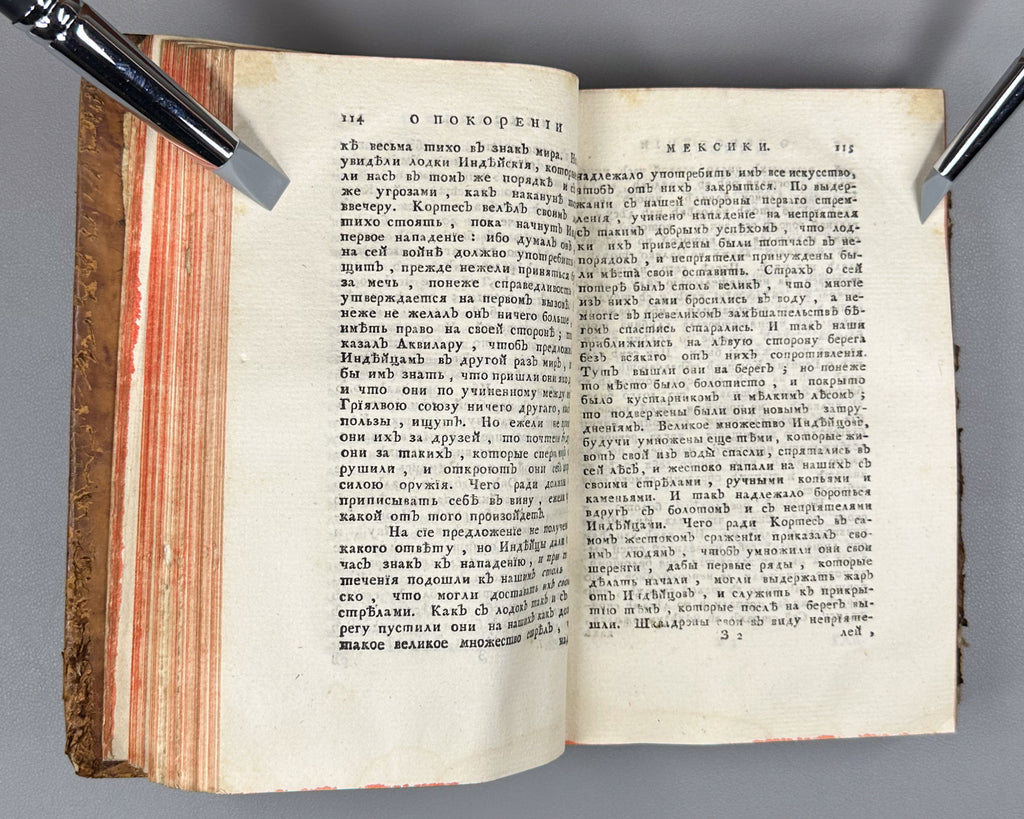 114 О ПОКОРЕНІИ
кѣ весьма тихо въ знакъ мира.
увидѣли лодки Индѣйскія,
ли насъ въ томъ же порядкѣ и
же угрозами, какъ наканунѣ
ввечеру. Кортесъ велѣлъ своимъ
тихо стоять, пока начнутъ
первое нападеніе: ибо думалъ онъ
на сей войнѣ должно употребить
щитъ, прежде нежели приняться
за мечь, понеже справедливость
утверждается на первомъ вызовѣ.
неже не желалъ онъ ничего больше,
имѣть право на своей сторонѣ;
казалъ Аквилару, чтобъ
Индѣйцамъ въ другой разъ миръ,
бы имъ знать, что пришли они
и что они по учиненному между
Гріялвою союзу ничего другаго,
пользы, ищутъ. Но ежели не
они ихъ за друзей, то
они за такихъ, которые
рушили, и откроютъ они себѣ
силою оружія. Чего ради
приписывать себѣ въ вину,
какой отъ того произойдетъ.
На сіе предложеніе не
какого отвѣту, но Индѣйцы дали
часъ знакъ къ нападенію, и при
теченія подошли къ нашимъ столь
ско, что могли доставать ихъ
стрѣлами. Какъ съ лодокъ такъ и съ
регу пустили они на нашихъ какъ
такое великое множество стрѣлъ,
над
МЕКСИКИ. 115
надлежало употребить имъ все искусство,
чтобъ отъ нихъ закрыться. По выдер-
жаніи съ нашей стороны перваго стрем-
ленія, учинено нападеніе на непріятеля
съ такимъ добрымъ успѣхомъ, что лод-
ки ихъ приведены были тотчасъ въ не-
порядокъ, и непріятели принуждены бы-
ли мѣста свои оставить. Страхъ о сей
потерѣ былъ столь великъ, что многіе
изъ нихъ сами бросились въ воду, а не-
многіе въ превеликомъ замѣшательствѣ бѣ-
гомъ спастись старались. И такъ наши
приближились на лѣвую сторону берега
безъ всякаго отъ нихъ сопротивленія.
Тутъ вышли они на берегъ; но понеже
то мѣсто было болотисто, и покрыто
было кустарникомъ и мѣлкимъ лѣсомъ;
то подвержены были они новымъ затру-
дненіямъ. Великое множество Индѣйцовъ,
будучи умножены еще тѣми, которые жи-
вотъ свой изъ воды спасли, спрятались въ
сей лѣсъ, и жестоко напали на нашихъ съ
своими стрѣлами, ручными копьями и
каменьями. И такъ надлежало бороться
вдругъ съ болотомъ и съ непріятелями
Индѣйцами. Чего ради Кортесъ въ са-
момъ жестокомъ сраженіи приказалъ сво-
имъ людямъ, чтобъ умножили они свои
шеренги, дабы первые ряды, которые
дѣлать начали, могли выдержать жаръ
отъ Индѣйцовъ, и служить къ прикры-
тію тѣмъ, которые послѣ на берегъ вы-
шли. Шквадроны свои въ виду непріяте-
З 2 лей,